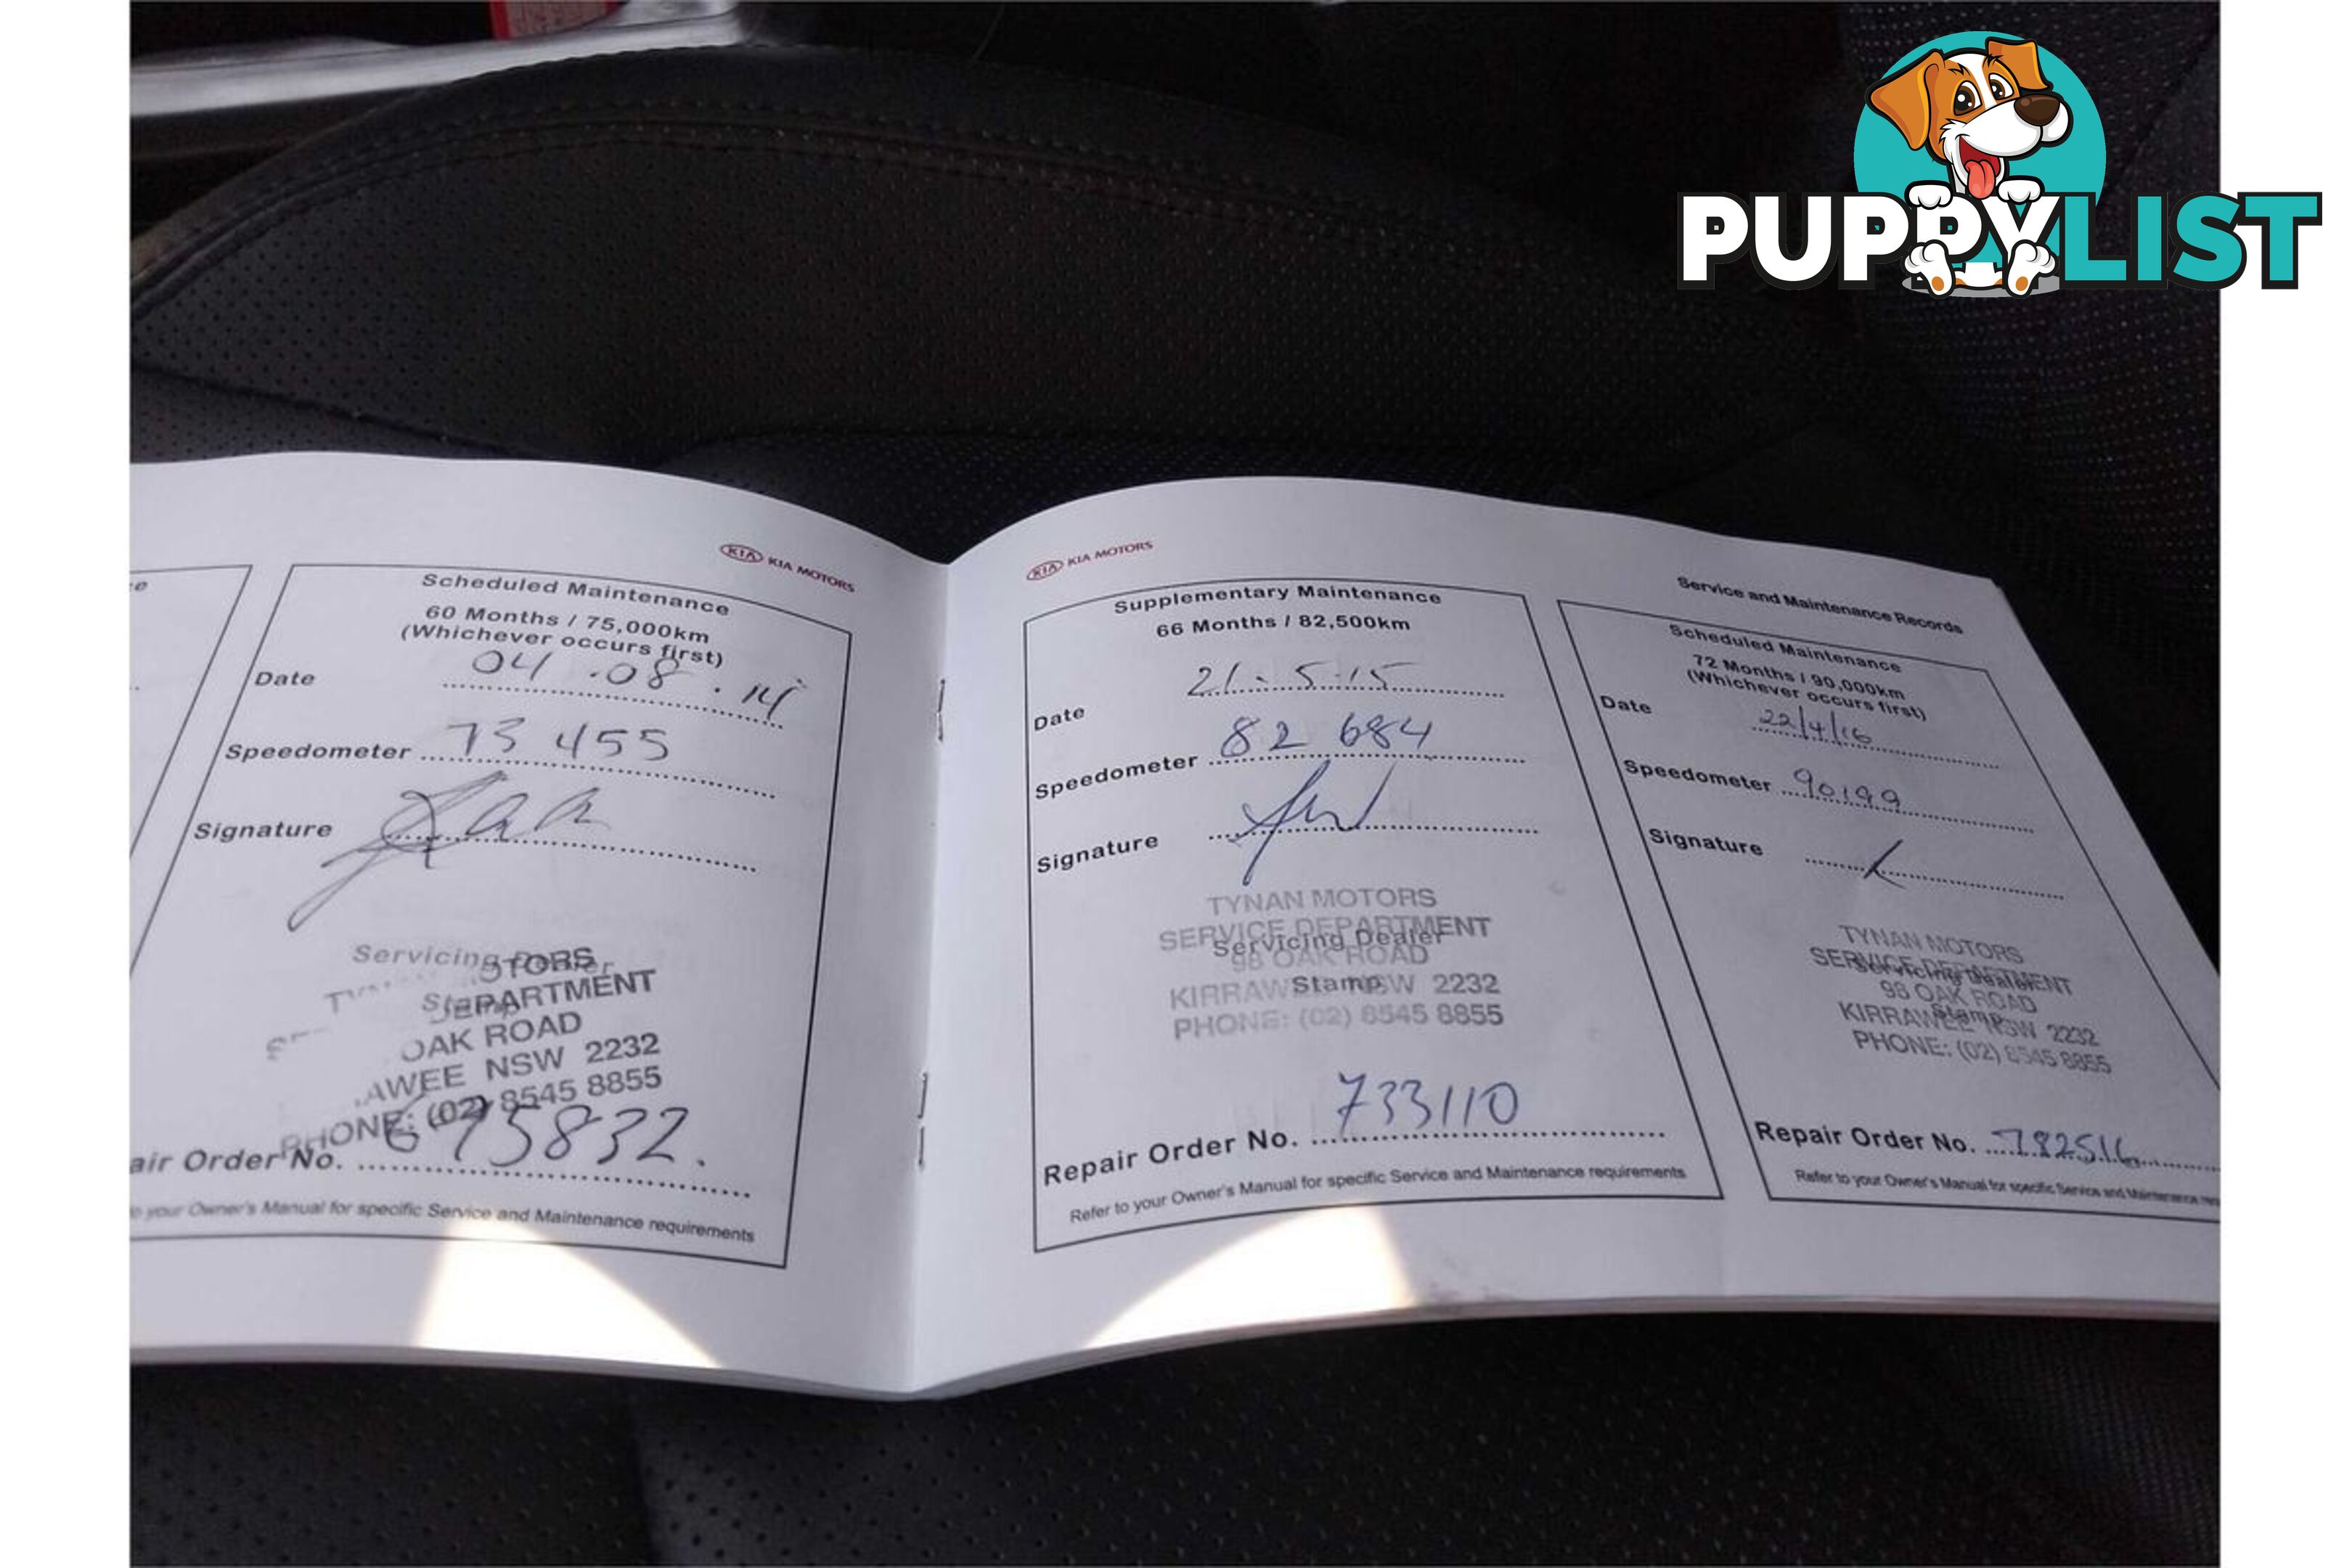 PUPPYLIST
KIA KIA MOTORS
Scheduled Maintenance
60 Months / 75,000km
(Whichever occurs first)
Date 04.08.14
Speedometer 73 455
Signature
Servicing Dealer
Stamp
OTORS
DEPARTMENT
OAK ROAD
AWEE NSW 2232
PHONE: (02) 8545 8855
air Order No. 695832.
your Owner's Manual for specific Service and Maintenance requirements
KIA KIA MOTORS
Supplementary Maintenance
66 Months / 82,500km
Date 21.5.15
Speedometer 82 684
Signature
Servicing Dealer
Stamp
TYNAN MOTORS
SERVICE DEPARTMENT
98 OAK ROAD
KIRRAWEE NSW 2232
PHONE: (02) 8545 8855
Repair Order No. 733110
Refer to your Owner's Manual for specific Service and Maintenance requirements
Service and Maintenance Records
Scheduled Maintenance
72 Months / 90,000km
(Whichever occurs first)
Date 22/4/16
Speedometer 90199
Signature
Servicing Dealer
Stamp
TYNAN MOTORS
SERVICE DEPARTMENT
98 OAK ROAD
KIRRAWEE NSW 2232
PHONE: (02) 8545 8855
Repair Order No.
Refer to your Owner's Manual for specific Service and Maintenance